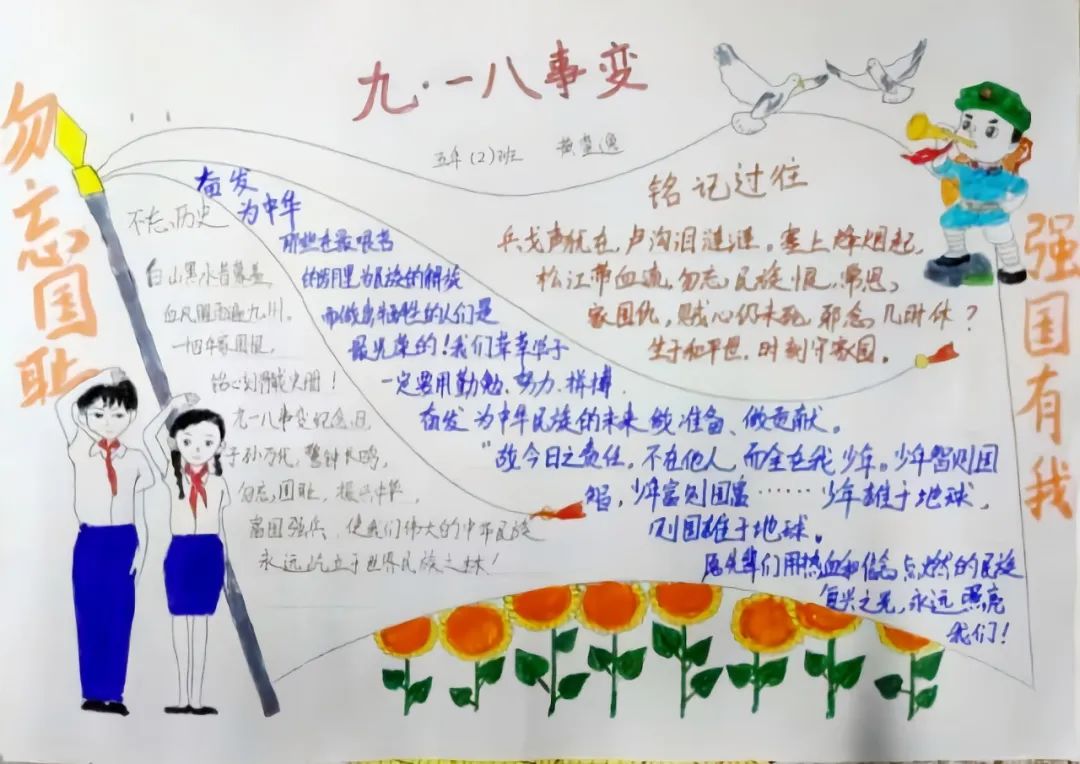 九·一八事变
五年(2)班
勿忘国耻
强国有我
不忘历史
白山黑水昔蒙羞,
血风腥雨遍九州。
一十四年家国恨,
铭心刻骨载史册!
九一八事变纪念日,
子孙万代,警钟长鸣,
勿忘国耻,振兴中华,
富国强兵,使我们伟大的中华民族
永远屹立于世界民族之林!
奋发
为中华
那些在最艰苦
的岁月里为民族的解放
而做出牺牲的人们是
最光荣的!我们莘莘学子
一定要用勤勉、努力、拼搏,
奋发为中华民族的未来做准备、做贡献。
“故今日之责任,不在他人,而全在我少年。少年智则国
智,少年富则国富……少年雄于地球,
则国雄于地球。
愿先辈们用热血和信念点燃的民族
复兴之光,永远照亮
我们!
铭记过往
兵戈声犹在,卢沟泪涟涟。塞上烽烟起,
松江带血流。勿忘民族恨,常思
家国仇,贼心仍未死,邪念几时休?
生于和平世,时刻守家国。